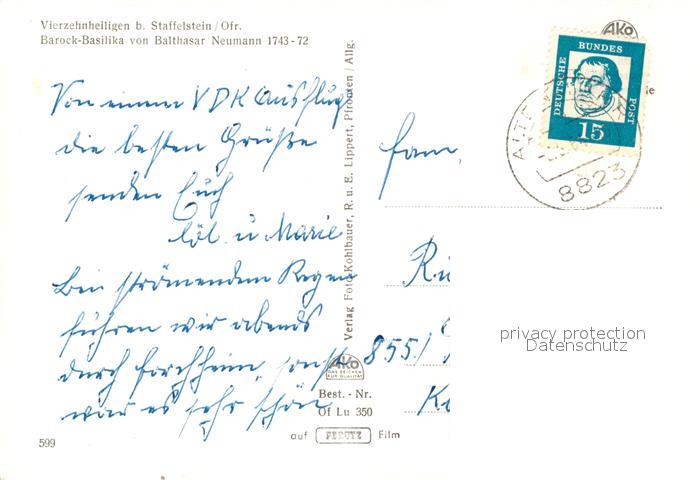 Vierzehnheiligen b. Staffelstein/Ofr.
Barock-Basilika von Balthasar Neumann 1743-72
Von einem VDK Ausflug
die besten Grüße
senden Euch
u Marie
Bei strömendem Regen
fuhren wir abends
durch Forchheim, sonst
war es sehr schön
599
Verlag Foto Kohlbauer, R. u. E. Lippert, Pfronten / Allg.
AKO
DAS ZEICHEN
FÜR QUALITÄT
Best. - Nr.
Of Lu 350
auf PERUTZ Film
AKO
DEUTSCHE
BUNDES
POST
15
8823
Fam.
Ri
855./
privacy protection
Datenschutz